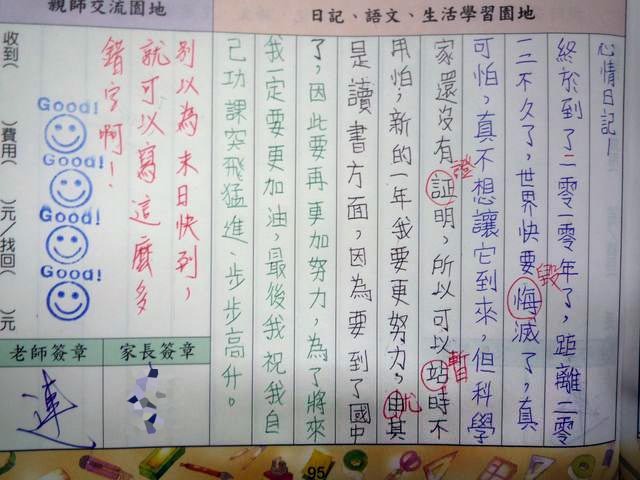 日記、語文、生活學習園地
心情日記一
終於到了二零一零年了，距離二零
一二不久了，世界快要悔滅了，真
毀
可怕，真不想讓它到來，但科學
家還沒有証明，所以可以站時不
證
暫
用怕；新的一年我要更努力，由其
尤
是讀書方面，因為要到了國中
了，因此要再更加努力，為了將來
我一定要更加油，最後我祝我自
己功課突飛猛進、步步高升。
親師交流園地
別以為末日快到，
就可以寫這麼多
錯字啊！
Good!
Good!
Good!
Good!
收到( )費用( )元/找回( )元
家長簽章
老師簽章
連
95